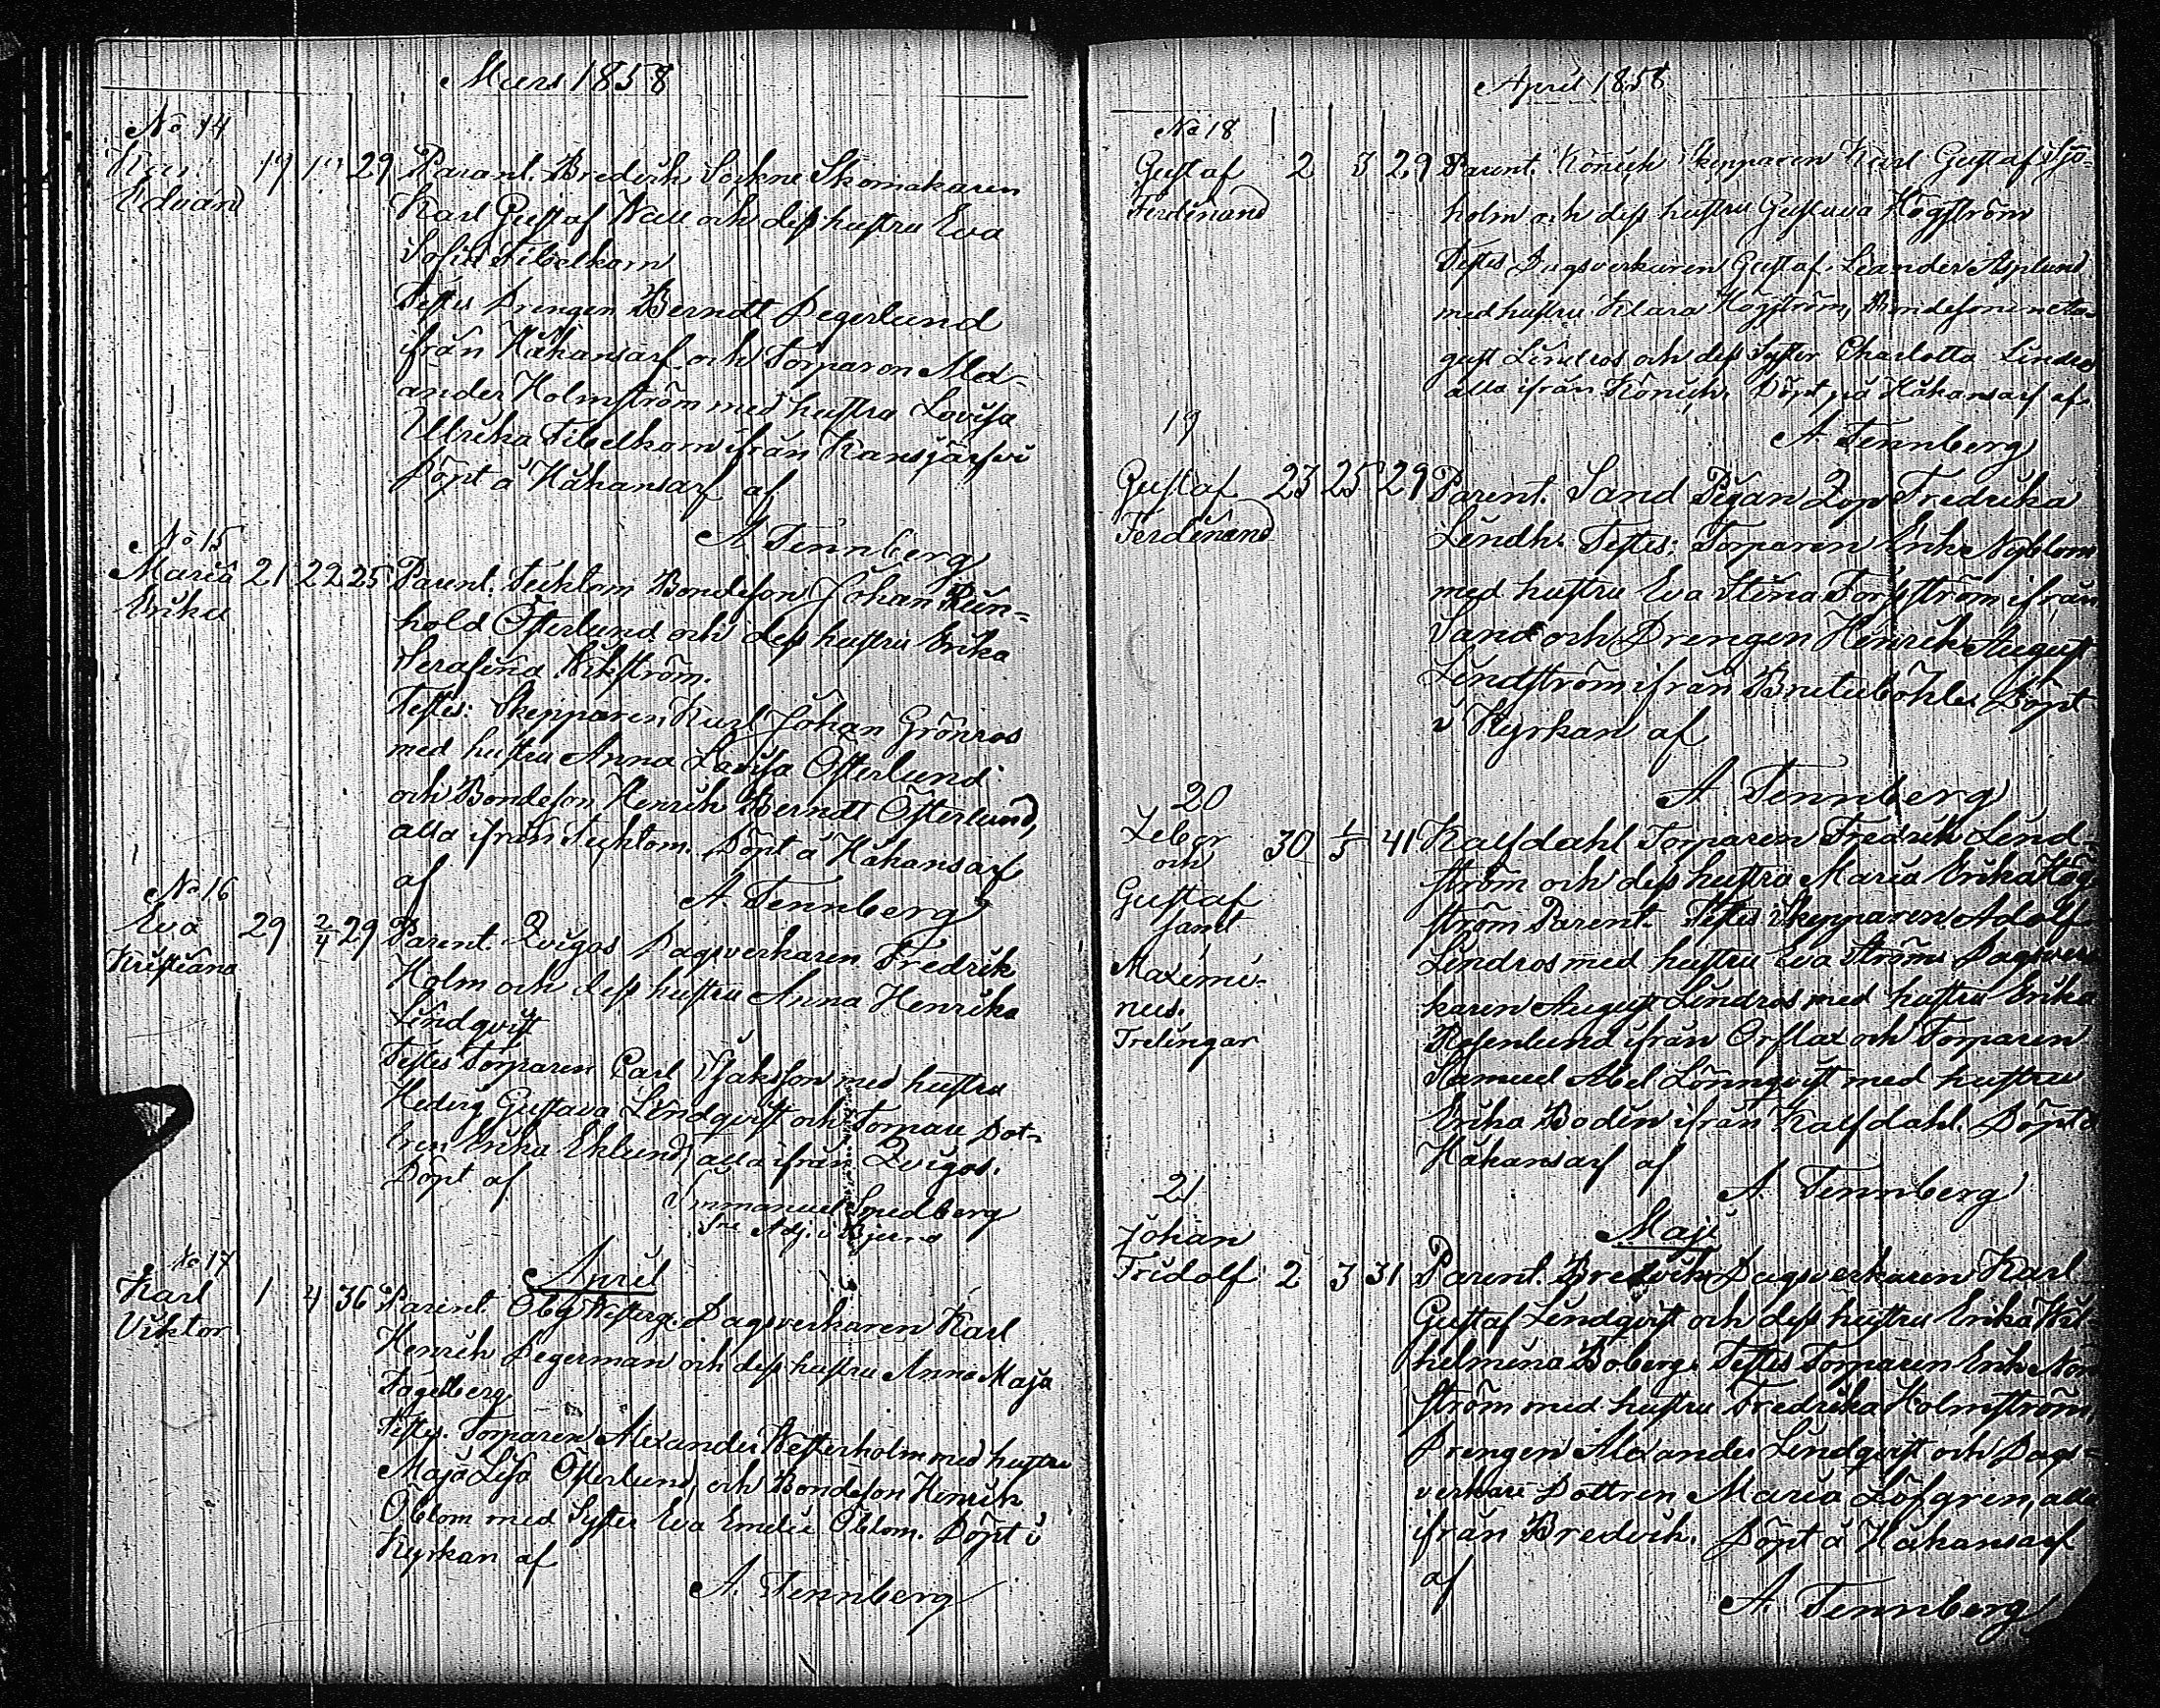 Mars 1858
No 14
Karl 19 19 29 Parent. Bredvik Sockne Skomakaren
Eduard Karl Gustaf Wall och dess hustru Eva
Sofia Fibelkorn
Testes Drengen Berndt Degerlund
ifrån Håkansarf och Torparen Alex-
ander Holmström med hustru Lovisa
Ullrika Fibelkorn ifrån Kansjärfvi
Döpt å Håkansarf af
A Tennberg
No 15
Maria 21 22 25 Parent. Techtom Bondeson Johan Rein-
Erika hold Österlund och dess hustru Erika
Serafina Wikström.
Testes: Skepparen Karl Johan Grönroos
med hustru Anna Lovisa Österlund
och Bondeson Henrik Berndt Österlund,
alla ifrån Techtom. Döpt å Håkansarf
af
A Tennberg
No 16
Eva 29 2/4 29 Parent. Qvigos Dagsverkaren Fredrik
Kristiana Holm och dess hustru Anna Henrika
Lindqvist
Testes Torparen Carl Isaksson med hustru
Hedvig Gustava Lindqvist och Torpare Dot-
tren Erika Eklund, alla ifrån Qvigos.
Döpt af
Immanuel Smedberg
Adj. i Bjerno
No 17
April
Karl 1 4 36 Parent. Öby Westerg. Dagsverkaren Karl
Viktor Henrik Degerman och dess hustru Anna Maja
Fagerberg
Testes. Torparen Alexander Westerholm med hustru
Maja Lisa Österlund, och Bondeson Henrik
Öblom med Syster Eva Emelie Öblom. Döpt i
Kyrkan af
A. Tennberg
April 1858
No 18
Gustaf 2 3 29 Parent. Könick Skepparen Karl Gustaf Sjö-
Ferdinand holm och dess hustru Gustava Högström
Testes Dagsverkaren Gustaf Leander Asplund
med hustru Klara Högström, Bondesonen Au-
gust Lindros och dess Syster Charlotta Lindros
alla ifrån Könick. Döpt på Håkansarf af
A Tennberg
19
Gustaf 23 25 29 Parent. Sand Pigan Fredrika
Ferdinand Lindh. Testes: Torparen Erik Nyblom
med hustru Eva Stina Torsström ifrån
Sand och Drengen Henrik August
Lindström ifrån Brutuböhle. Döpt
i Kyrkan af
A Tennberg
20
Zeber 30 1/5 41 Kalfdahl Torparen Fredrik Lind-
och ström och dess hustru Maria Erika Hög-
Gustaf ström Parent. Testes Skepparen Adolf
samt Lindros med hustru Eva Ström Dagsver-
Maximi- karen August Lindros med hustru Erika
nus. Rosenlund ifrån Orslax och Torparen
Trelingar Samuel Abel Lönnqvist med hustru
Erika Bodén ifrån Kalfdahl. Döpt å
Håkansarf af
A. Tennberg
21
Maji
Johan
Fridolf 2 3 31 Parent. Bredvik Dagsverkaren Karl
Gustaf Lindqvist och dess hustru Erika Wil-
helmina Boberg. Testes Torparen Erik Nor-
ström med hustru Fredrika Holmström,
Drengen Alexander Lindqvist och Dags-
verkare Dottren Maria Löfgren, alla
ifrån Bredvik. Döpt å Håkansarf
af
A. Tennberg